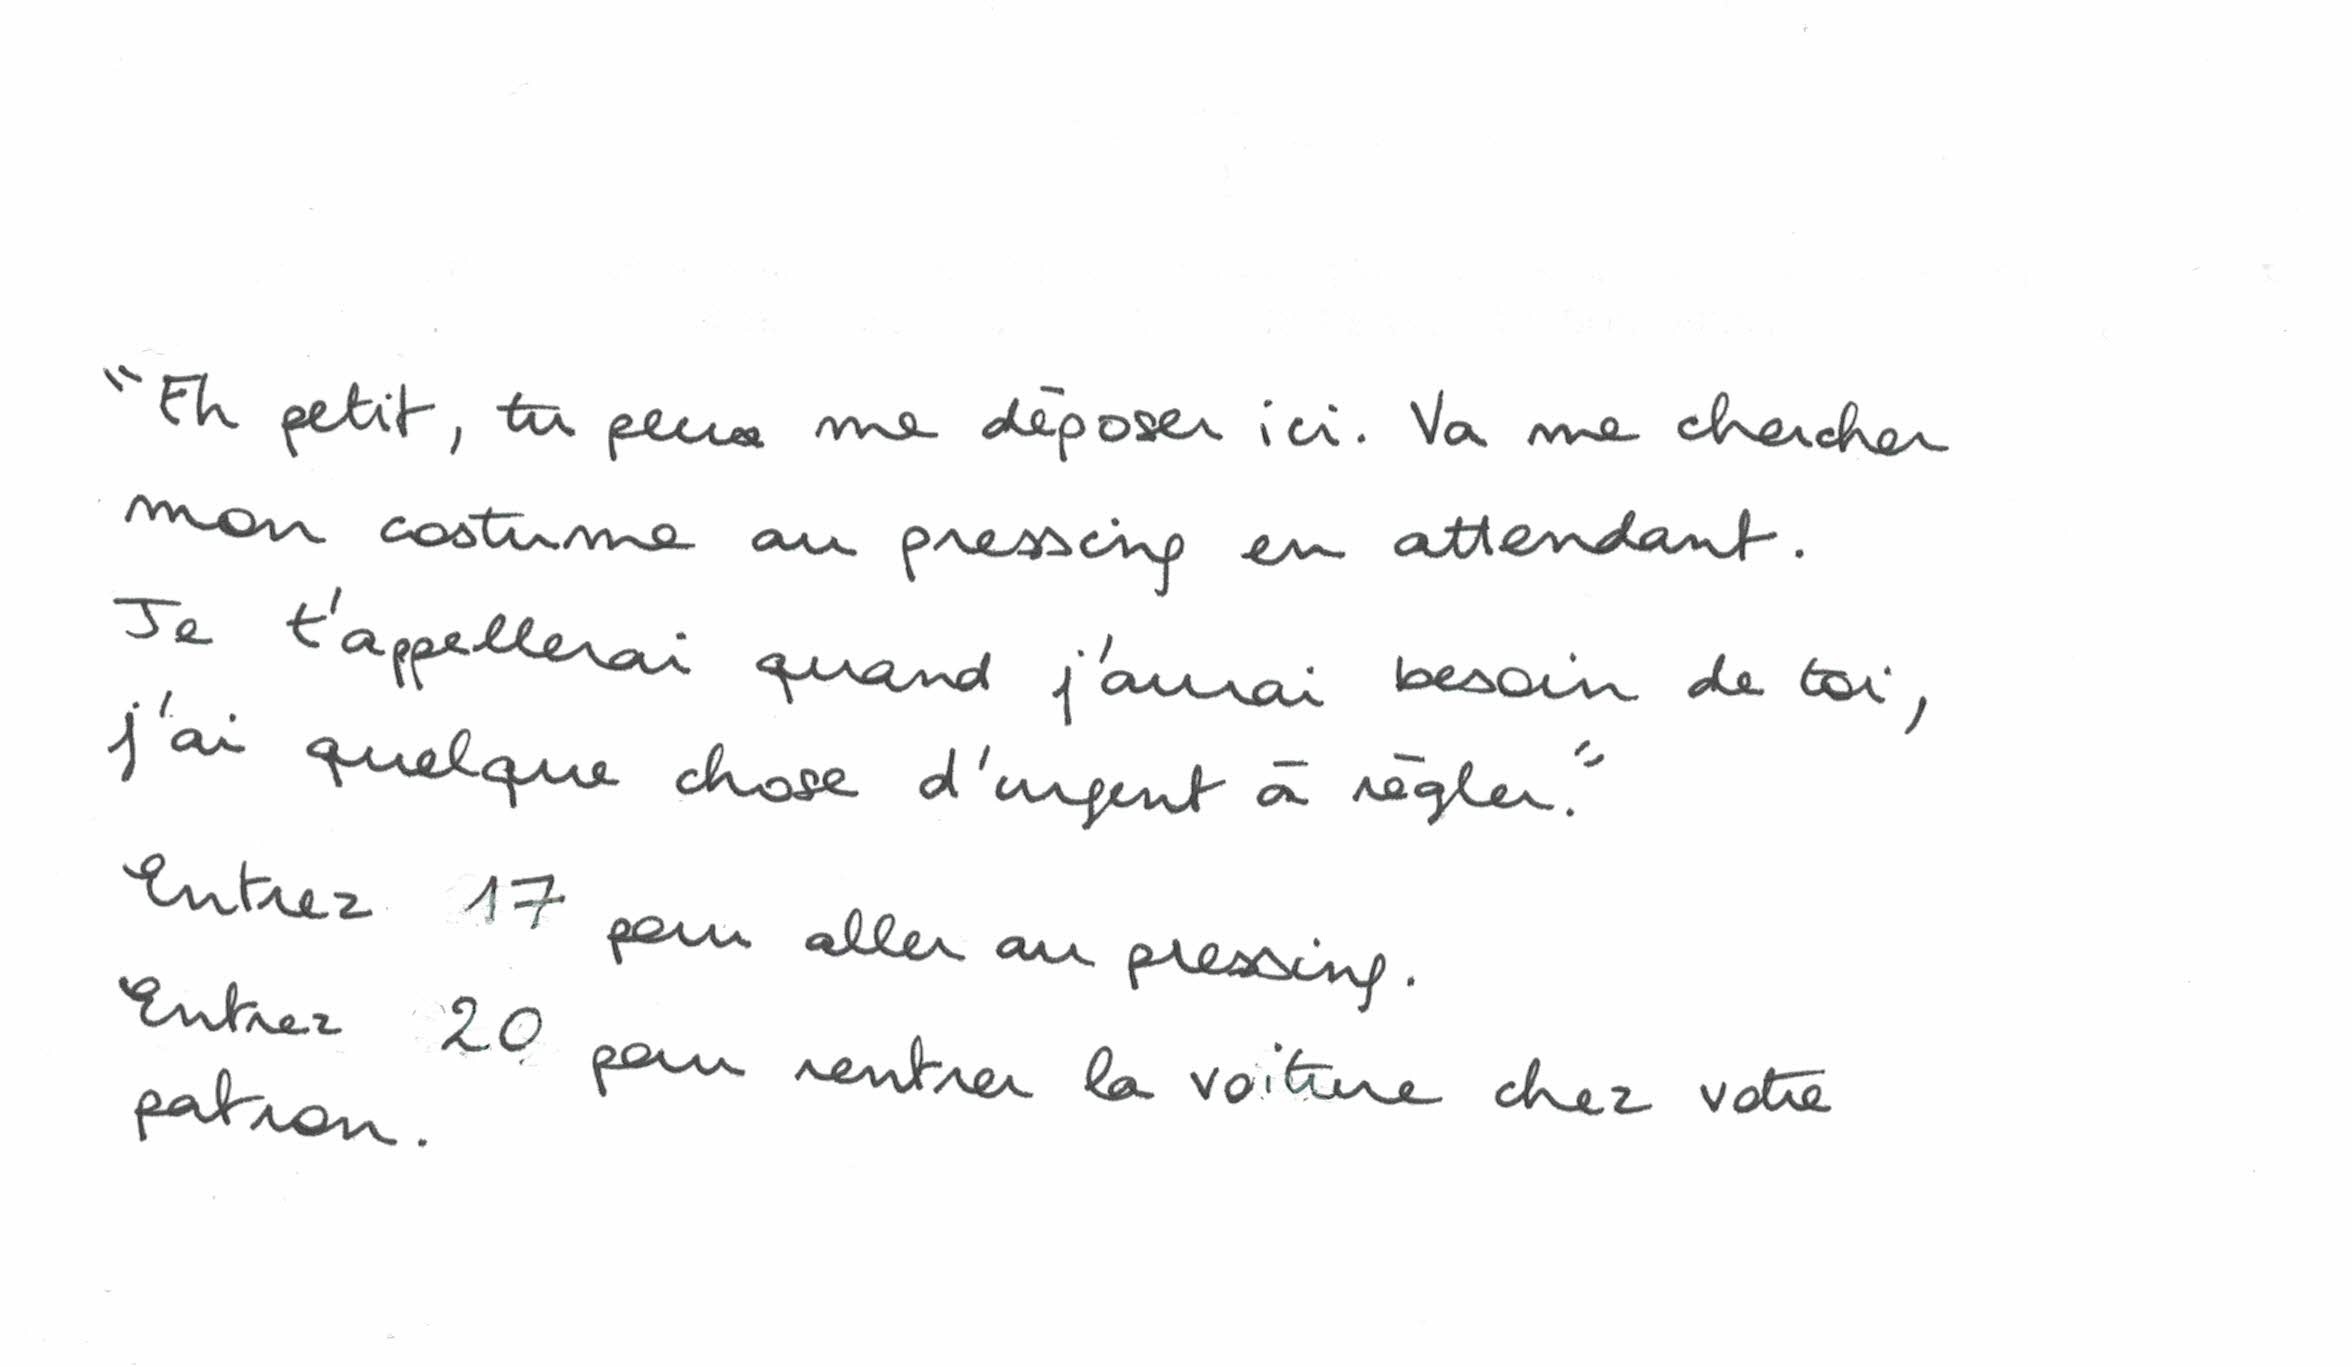 "Eh petit, tu peux me déposer ici. Va me chercher
mon costume au pressing en attendant.
Je t'appellerai quand j'aurai besoin de toi,
j'ai quelque chose d'urgent à régler."
Entrez 17 pour aller au pressing.
Entrez 20 pour rentrer la voiture chez votre
patron.